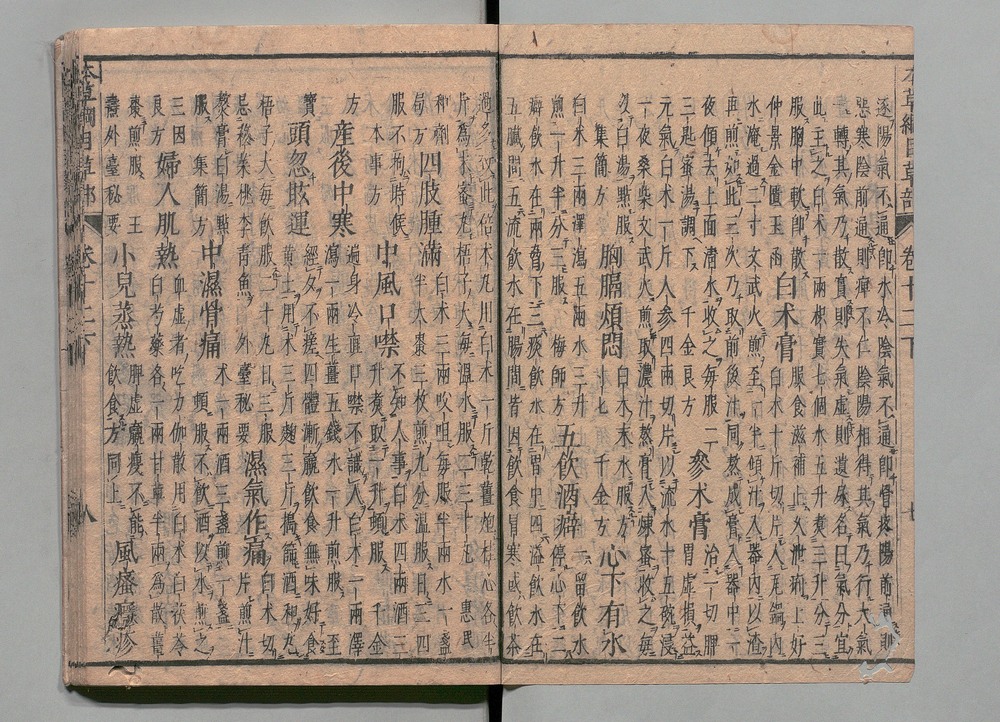 本草綱目草部 卷十二下 七
逐陽氣不通即水冷陰氣不通即骨疼陽前通則
悪寒陰前通則痺不仁陰陽相得其氣乃行大氣
一轉其氣乃散實則失氣虛則遺尿名曰氣分宜
此主之白术一兩枳實七個水五升煮三升分三
服胸中軟即散
仲景金匱玉函
白术膏
服食滋補止久泄痢上好
白术十斤切片入瓦鍋內
水淹過二寸文武火煎至一半傾汁入器內以渣
再煎如此三次乃取前後汁同熬成膏入器中一
夜傾去上面清水收之每服二
三匙蜜湯調下 千金良方
參术膏
治一切脾
胃虛損益
元氣白术一斤人參四兩切片以流水十五碗浸
一夜桑柴文武火煎取濃汁熬膏入煉蜜收之每
以白湯點服
集簡方
胸膈煩悶
白术末水服方
寸七 千金方
心下有水
白术三兩澤瀉五兩水三升
煎一升半分三服 梅師方
五飲酒癖
一留飲水
停心下二
癖飲水在兩脅下三痰飲水在胃中四溢飲水在
五臟間五流飲水在腸間皆因飲食冒寒或飲茶
過多致此倍术丸用白术一斤乾薑炮桂心各半
斤爲末蜜丸梧子大每溫水服二三十丸 惠民
和劑
局方
四肢腫滿
白术三兩㕮咀每服半兩水一盞
半大棗三枚煎九分溫服日三四
服不拘時候
本事方
中風口噤
不知人事白术四兩酒三
升煮取一升頓服 千金
方
產後中寒
遍身冷直口噤不識人白术一兩澤
瀉一兩生薑五錢水一升煎服 至
寶
頭忽眩運
經久不瘥四體漸羸飲食無味好食
黃土用术三斤麴三斤搗篩酒和丸
梧子大每飲服二十丸日三服
忌菘菜桃李青魚 外臺秘要
濕氣作痛
白术切
片煎汁
熬膏白湯點
服 集簡方
中濕骨痛
术一兩酒三盞煎一盞
頓服不飲酒以水煎之
三因
良方
婦人肌熱
血虛者吃力伽散用白术白茯苓
白芍藥各一兩甘草半兩爲散薑
棗煎服 王
燾外臺秘要
小兒蒸熱
脾虛羸瘦不能
飲食 方同上
風瘙癮疹
本草綱目草部 卷十二下 八